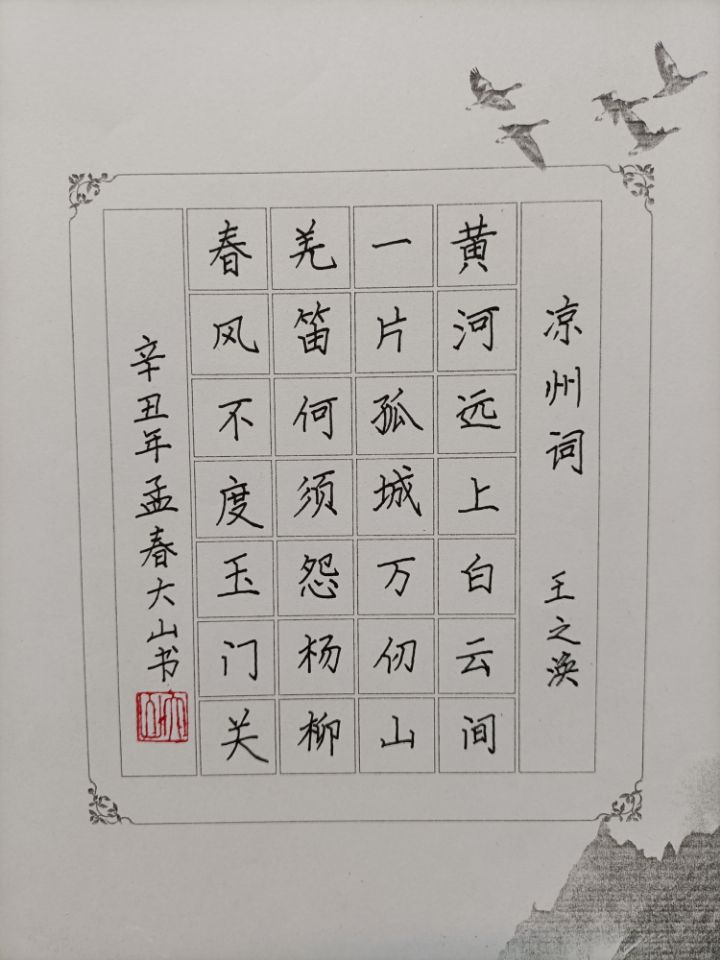 凉州词 王之涣
黄河远上白云间
一片孤城万仞山
羌笛何须怨杨柳
春风不度玉门关
辛丑年孟春大山书